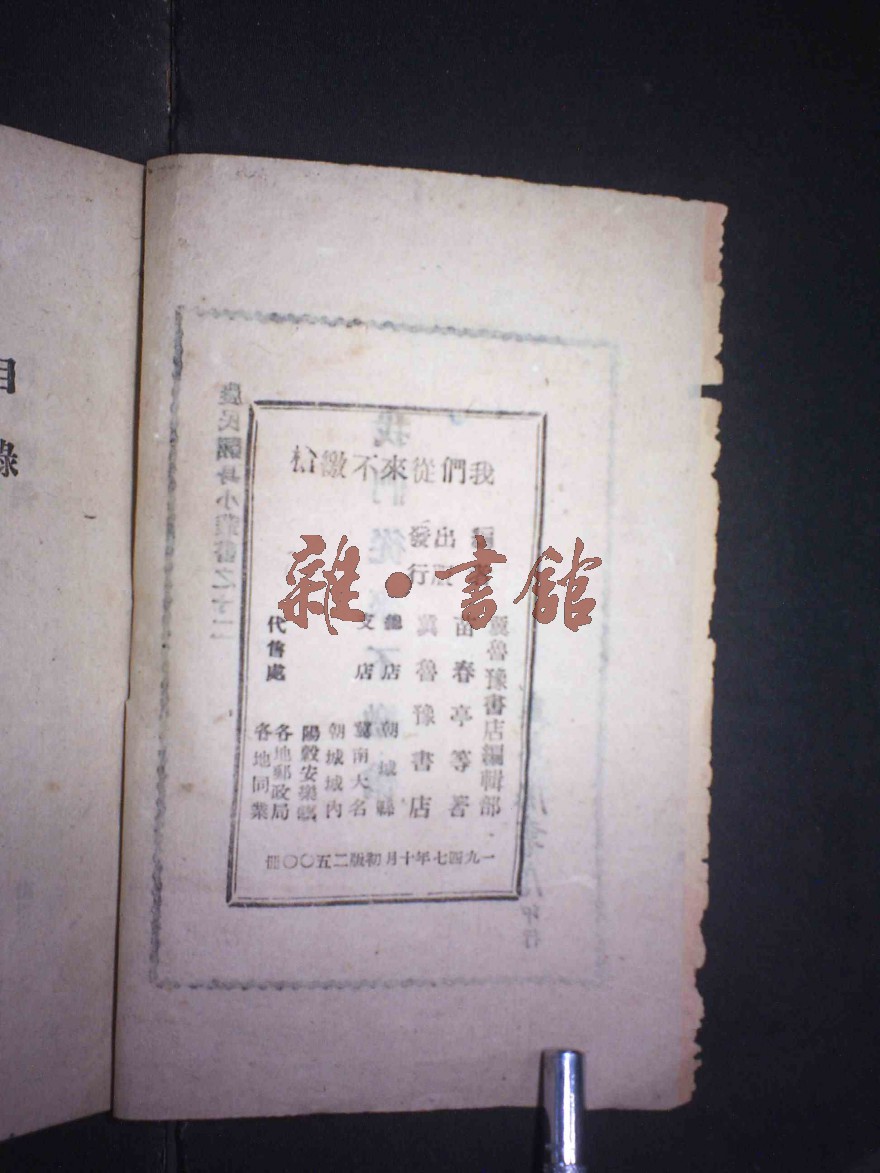 目錄
我們從來不繳
冀魯豫書店編輯部
苗春亭等著
出版
發行 冀魯豫書店
總店 朝城縣
支店 冀南大名
朝城城內
陽穀安樂鎮
代售處 各地郵政局
各地同業
一九四七年十月初版二五〇〇冊
農民翻身小叢書之十二
雜·書館